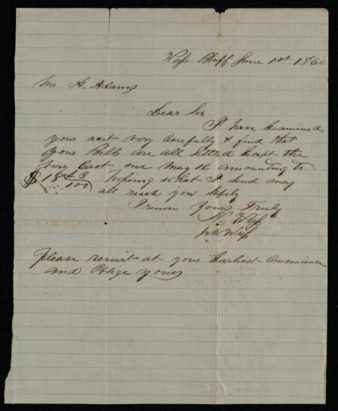 Bluff June 1st 186
Mr A. Adams
Dear Sir
I have Examined
your acct very Carefully & find that
your Bills are all Settled Except the
very Last one May the amounting to
$ 18 43/100 hoping what I Send may
all reach you Safely
I remain Yours Truly
N.
Please remit at your Earliest Convenience
and Oblige yours